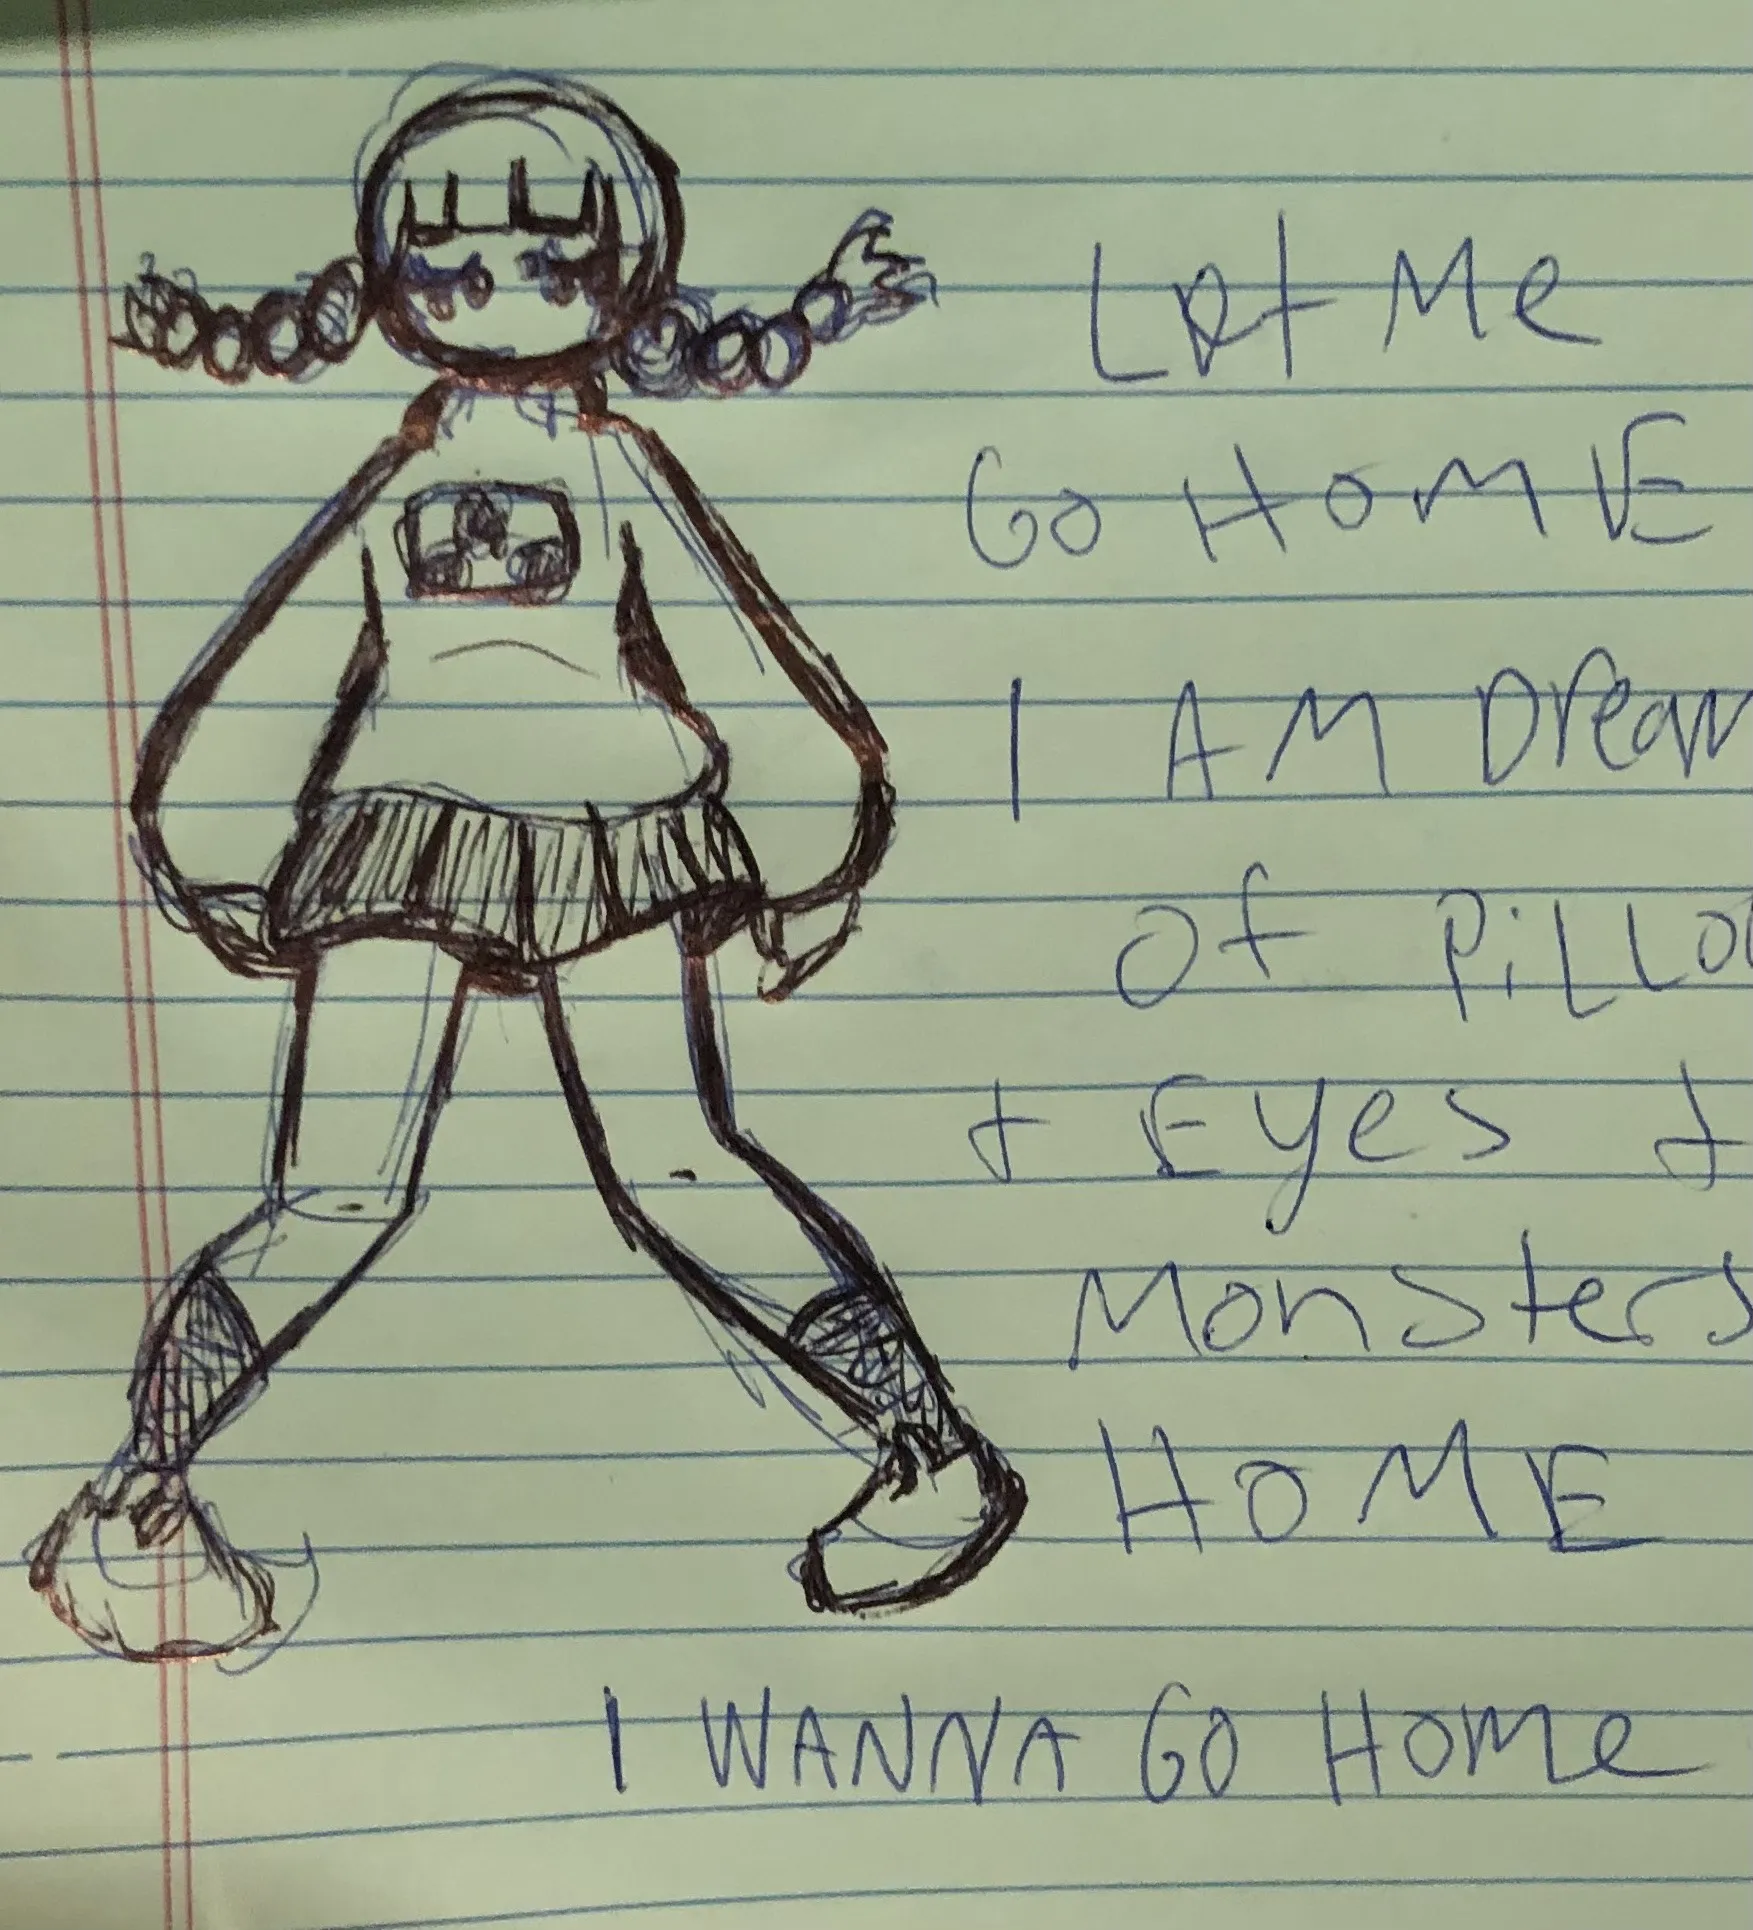 Let Me
Go HOME
I AM Dream
Of PiLLo
+ Eyes +
Monsters
HOME
I WANNA GO HOMe